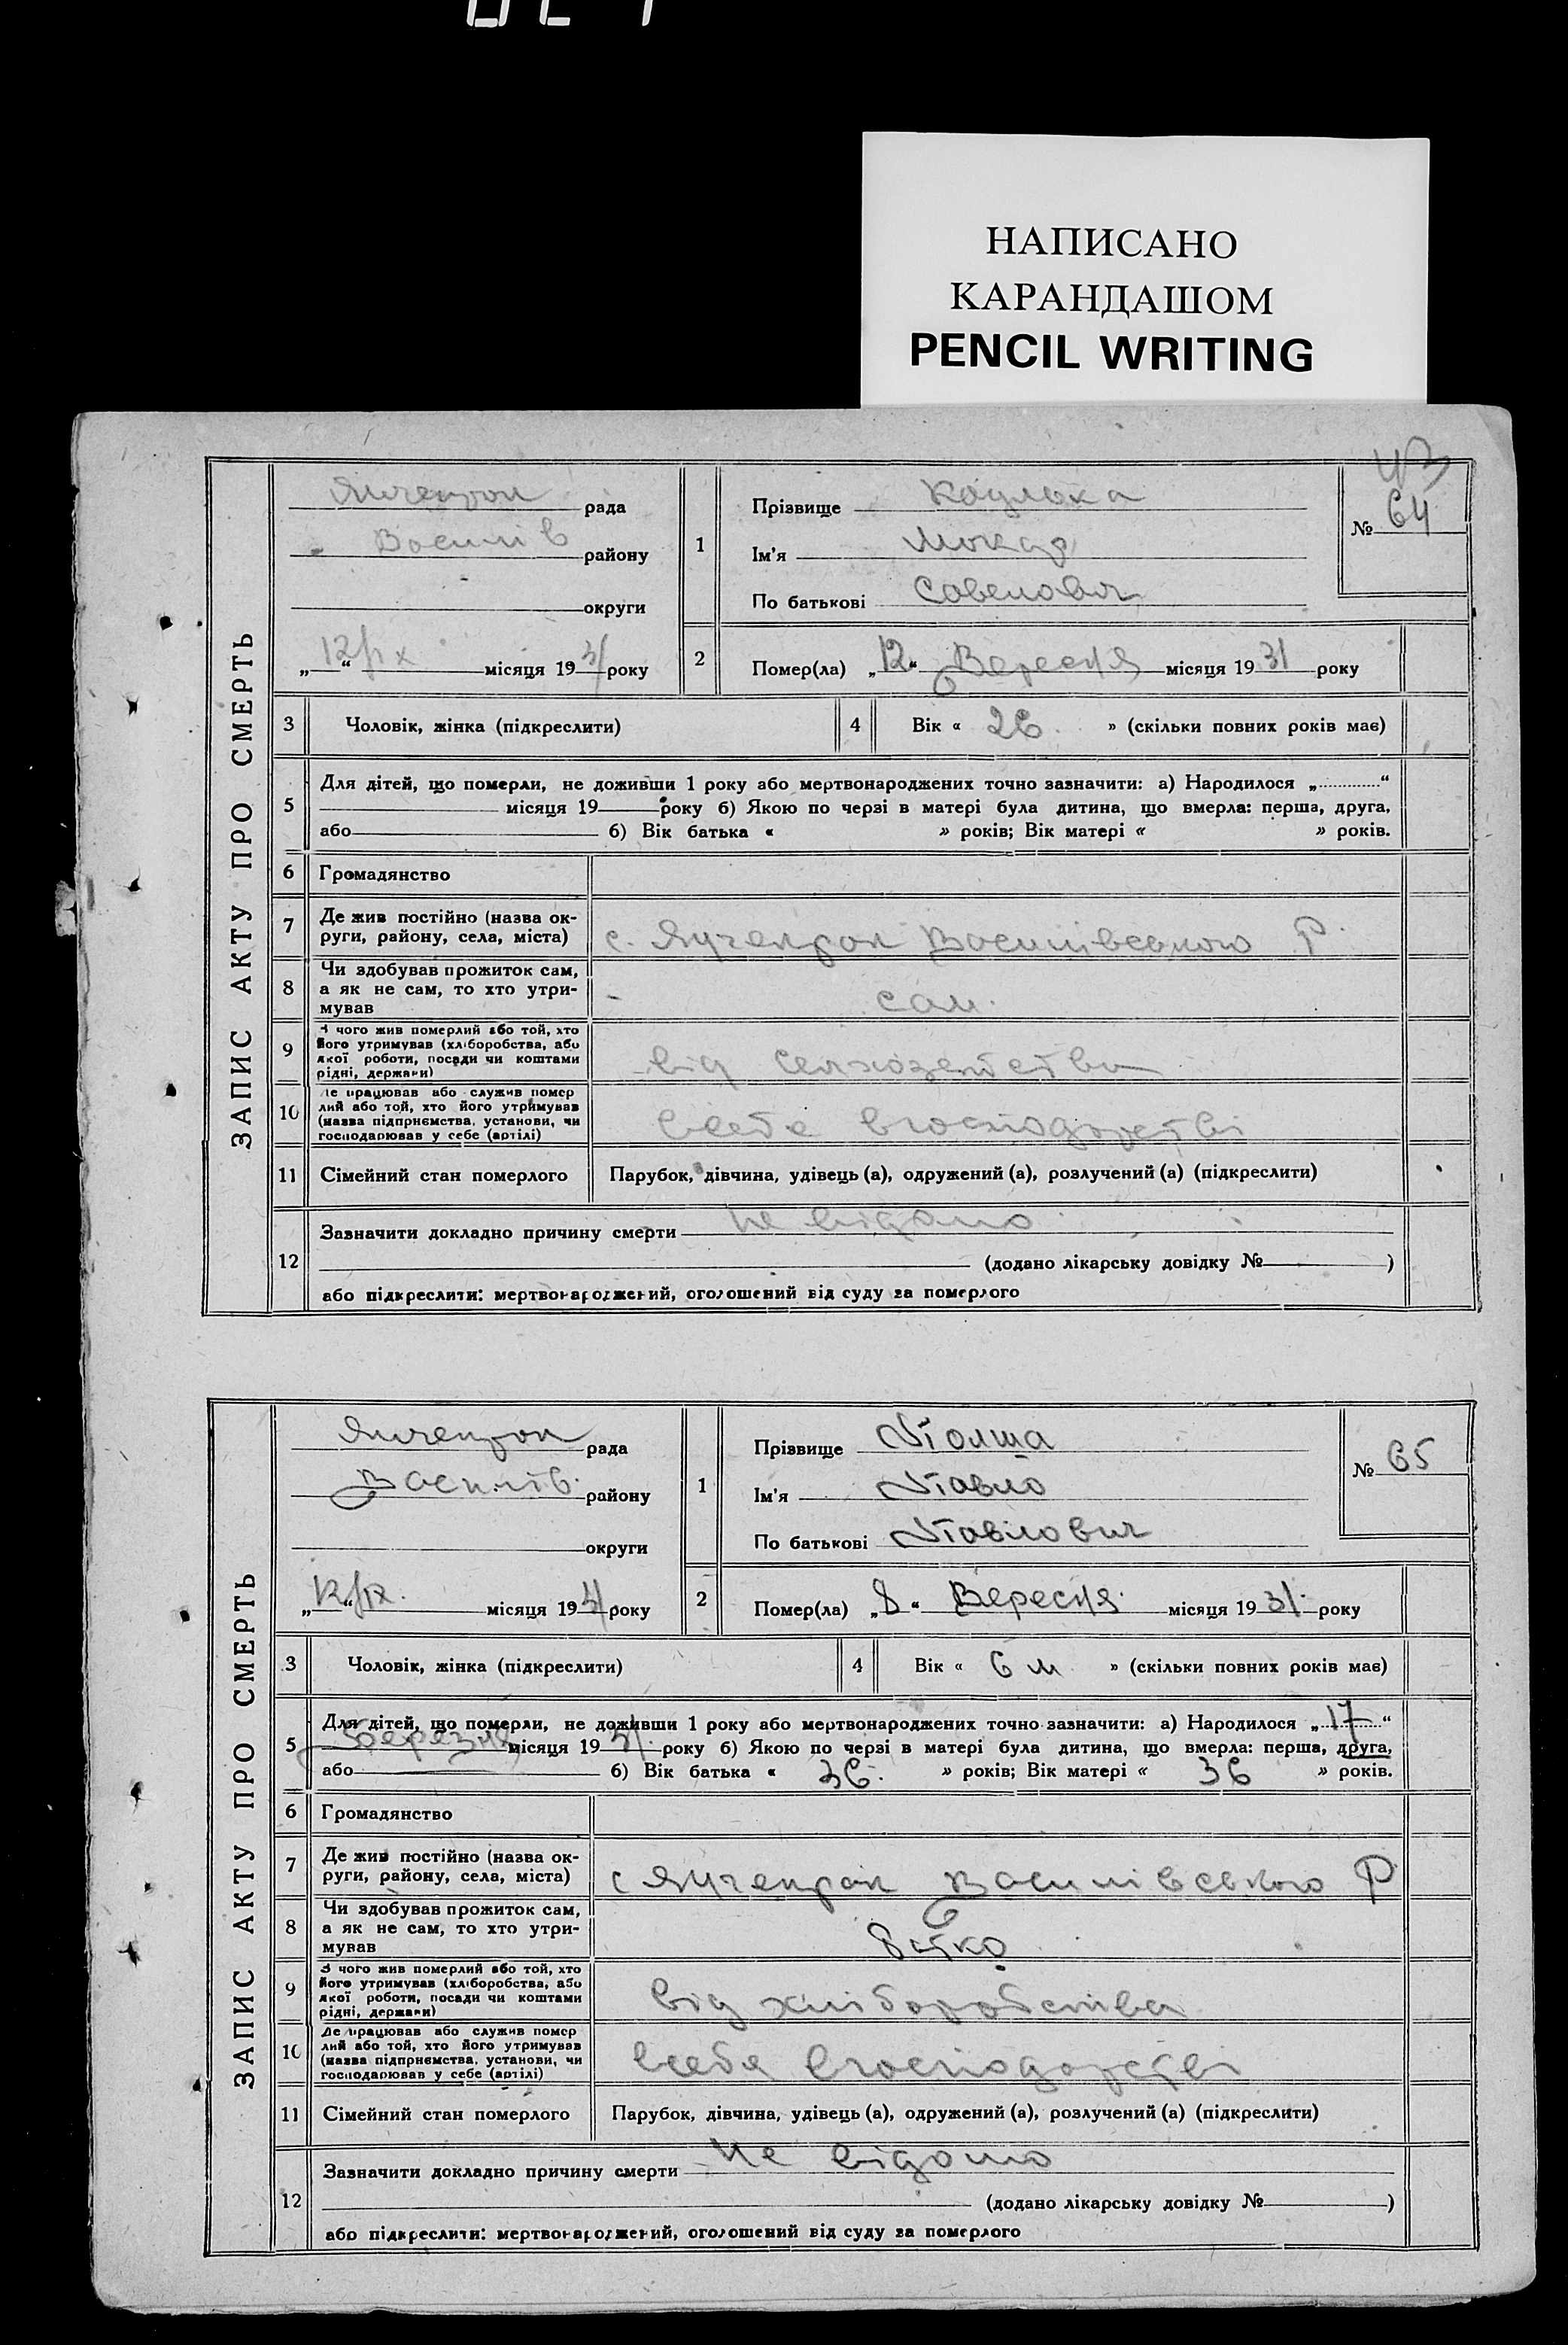 НАПИСАНО
КАРАНДАШОМ
PENCIL WRITING
ЗАПИС АКТУ ПРО СМЕРТЬ
рада
Василів району
округи
„12/ІХ“ місяця 1931 року
1
Прізвище
Ім'я Макар
По батькові Савелович
№ 64
2
Помер(ла) „12“ Вересня місяця 1931 року
3 Чоловік, жінка (підкреслити)
4 Вік « 26 » (скільки повних років має)
5 Для дітей, що померли, не доживши 1 року або мертвонароджених точно зазначити: а) Народилося „ “
місяця 19 року б) Якою по черзі в матері була дитина, що вмерла: перша, друга,
або б) Вік батька « » років; Вік матері « » років.
6 Громадянство
7 Де жив постійно (назва ок-
руги, району, села, міста) с. Янчекрак Василівського Р.
8 Чи здобував прожиток сам,
а як не сам, то хто утри-
мував сам.
9 З чого жив померлий або той, хто
його утримував (хліборобства, або
якої роботи, посади чи коштами
рідні, держави) від
10 Де працював або служив помер
лий або той, хто його утримував
(назва підприємства, установи, чи
господарював у себе (артілі) всебе вгосподарстві
11 Сімейний стан померлого Парубок, дівчина, удівець (а), одружений (а), розлучений (а) (підкреслити)
12 Зазначити докладно причину смерти не відомо
(додано лікарську довідку № )
або підкреслити: мертвонароджений, оголошений від суду за померлого
ЗАПИС АКТУ ПРО СМЕРТЬ
Янчекрак рада
Василів. району
округи
„12/ІХ“ місяця 1931 року
1
Прізвище Толша
Ім'я Павло
По батькові Павлович
№ 65
2
Помер(ла) „8“ Вересня місяця 1931 року
3 Чоловік, жінка (підкреслити)
4 Вік « 6 м » (скільки повних років має)
5 Для дітей, що померли, не доживши 1 року або мертвонароджених точно зазначити: а) Народилося „17“
березня місяця 1931 року б) Якою по черзі в матері була дитина, що вмерла: перша, друга,
або б) Вік батька « 36 » років; Вік матері « 36 » років.
6 Громадянство
7 Де жив постійно (назва ок-
руги, району, села, міста) с Янчекрак Василівського Р
8 Чи здобував прожиток сам,
а як не сам, то хто утри-
мував батко
9 З чого жив померлий або той, хто
його утримував (хліборобства, або
якої роботи, посади чи коштами
рідні, держави) від хліборобства
10 Де працював або служив помер
лий або той, хто його утримував
(назва підприємства, установи, чи
господарював у себе (артілі) всебе вгосподарстві
11 Сімейний стан померлого Парубок, дівчина, удівець (а), одружений (а), розлучений (а) (підкреслити)
12 Зазначити докладно причину смерти не відомо
(додано лікарську довідку № )
або підкреслити: мертвонароджений, оголошений від суду за померлого